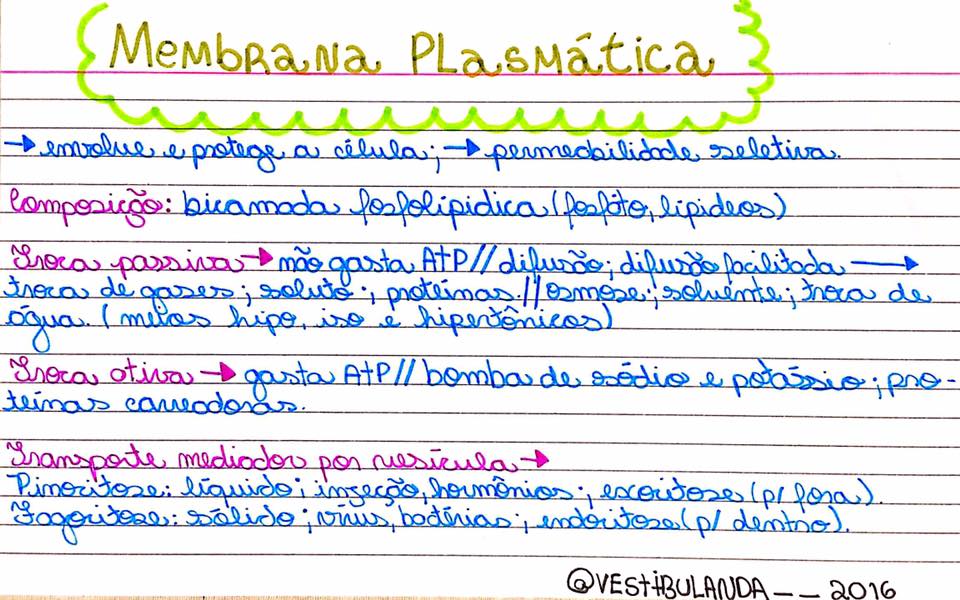 Membrana Plasmática
→ envolve e protege a célula; → permeabilidade seletiva.
Composição: bicamada fosfolipídica (fosfóto, lipídeos)
Troca passiva → não gasta ATP // difusão; difusão facilitada →
troca de gases; soluto; proteínas. // osmose: solvente; troca de
água. (meios hipo, iso e hipertônicos)
Troca ativa → gasta ATP // bomba de sódio e potássio; pro-
teínas carreadoras.
Transporte mediador por vesícula →
Pinocitose: líquido; injeção, hormônios; exocitose (p/ fora).
Fagocitose: sólido; vírus, bactérias; endocitose (p/ dentro).
@VESTIBULANDA__ 2016